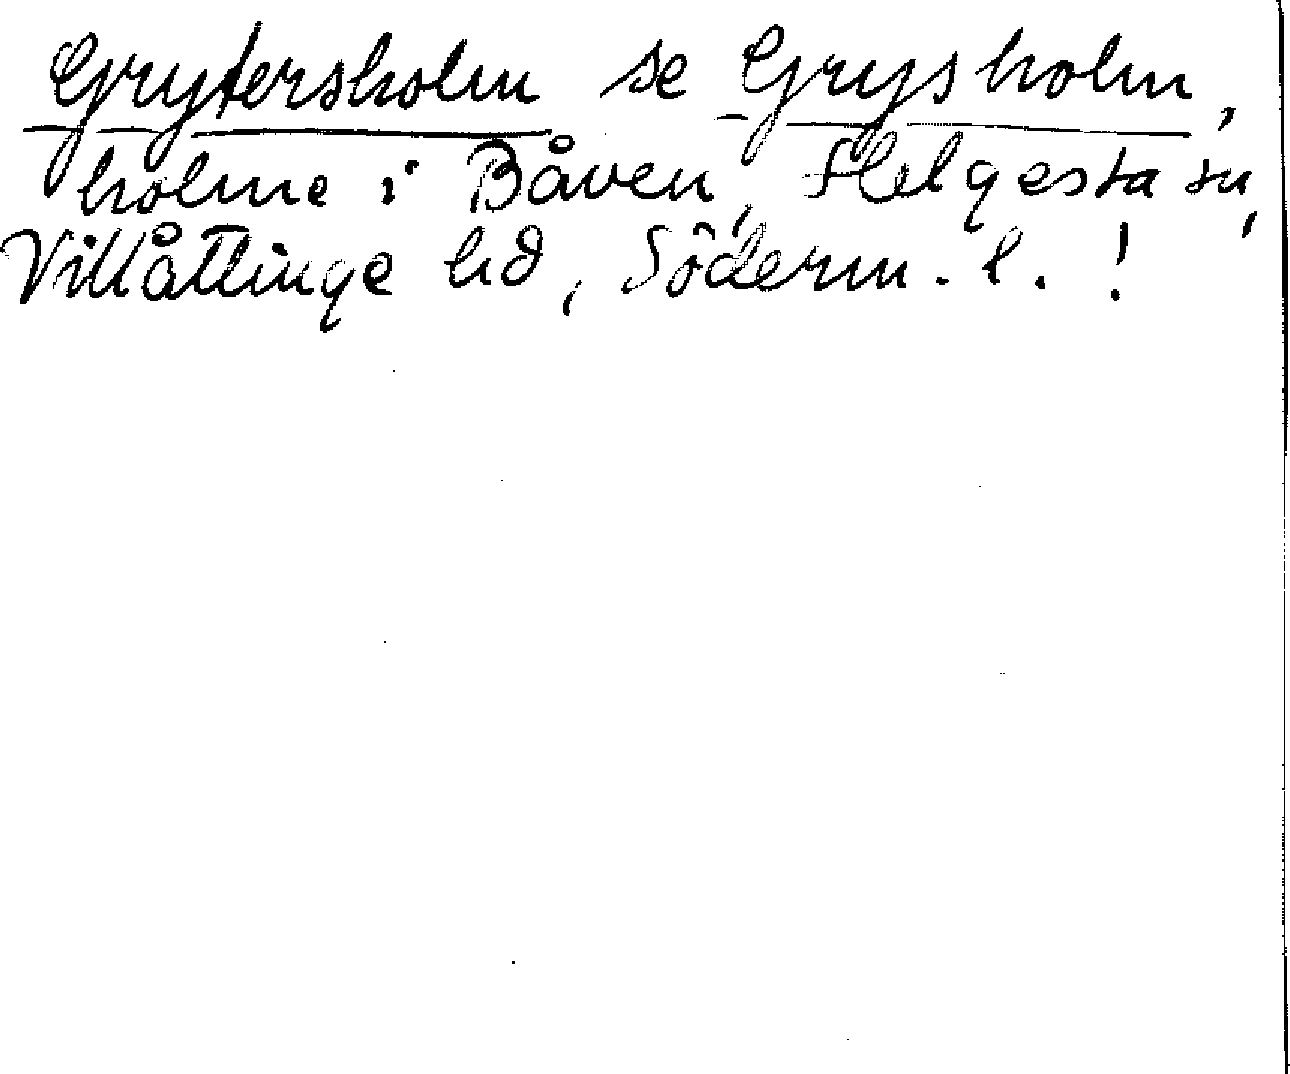 Grytersholm se Grysholm,
holme i Båven, Helgesta sn,
Villåttinge hd, Söderm. l. !